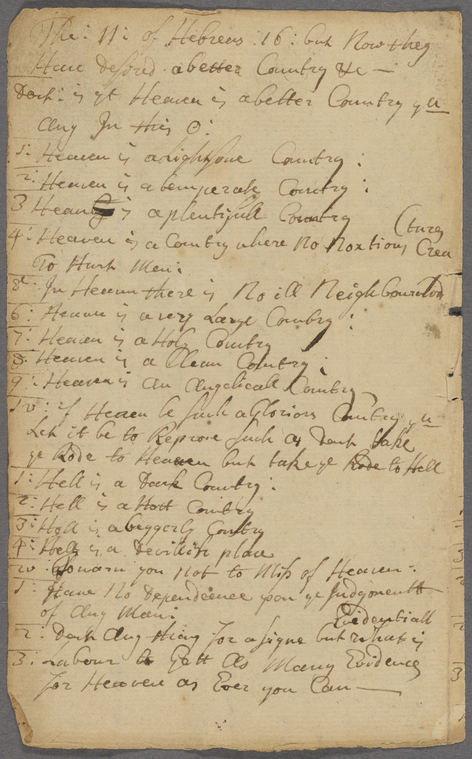 The: 11: of Hebrews: 16: but Now they
Have desired a better Country &c —
Doct: is yt Heaven is a better Country yn
any In this
1: Heaven is a Lightsome Country:
2: Heaven is a temperate Country:
3 Heaven is a plentifull Country
4: Heaven is a Country where No Noxtious Crea
(tures
To Hurt Men:
5: In Heaven there is No ill Neighbourhood
6: Heaven is a very Large Country:
7: Heaven is a Holy Country
8: Heaven is a Clean Country:
9: Heaven is An Angelicall Country
if Heaven be Such a Glorious Country yn
Let it be to Reprove Such as Dont take
ye Rode to Heaven but take ye Rode to Hell
1: Hell is a Dark Country:
2: Hell is a Hott Country
3: Hell is a beggerly Contry
4: Hell is a Devillish place
you Not to Miss of Heaven:
1: Have No Dependence upon ye Judgment
of Any Man:
2: Dont Any thing for a Signe but what is
Evidentiall
3: Labour to Gett As Many Evidences
for Heaven as Ever you Can —